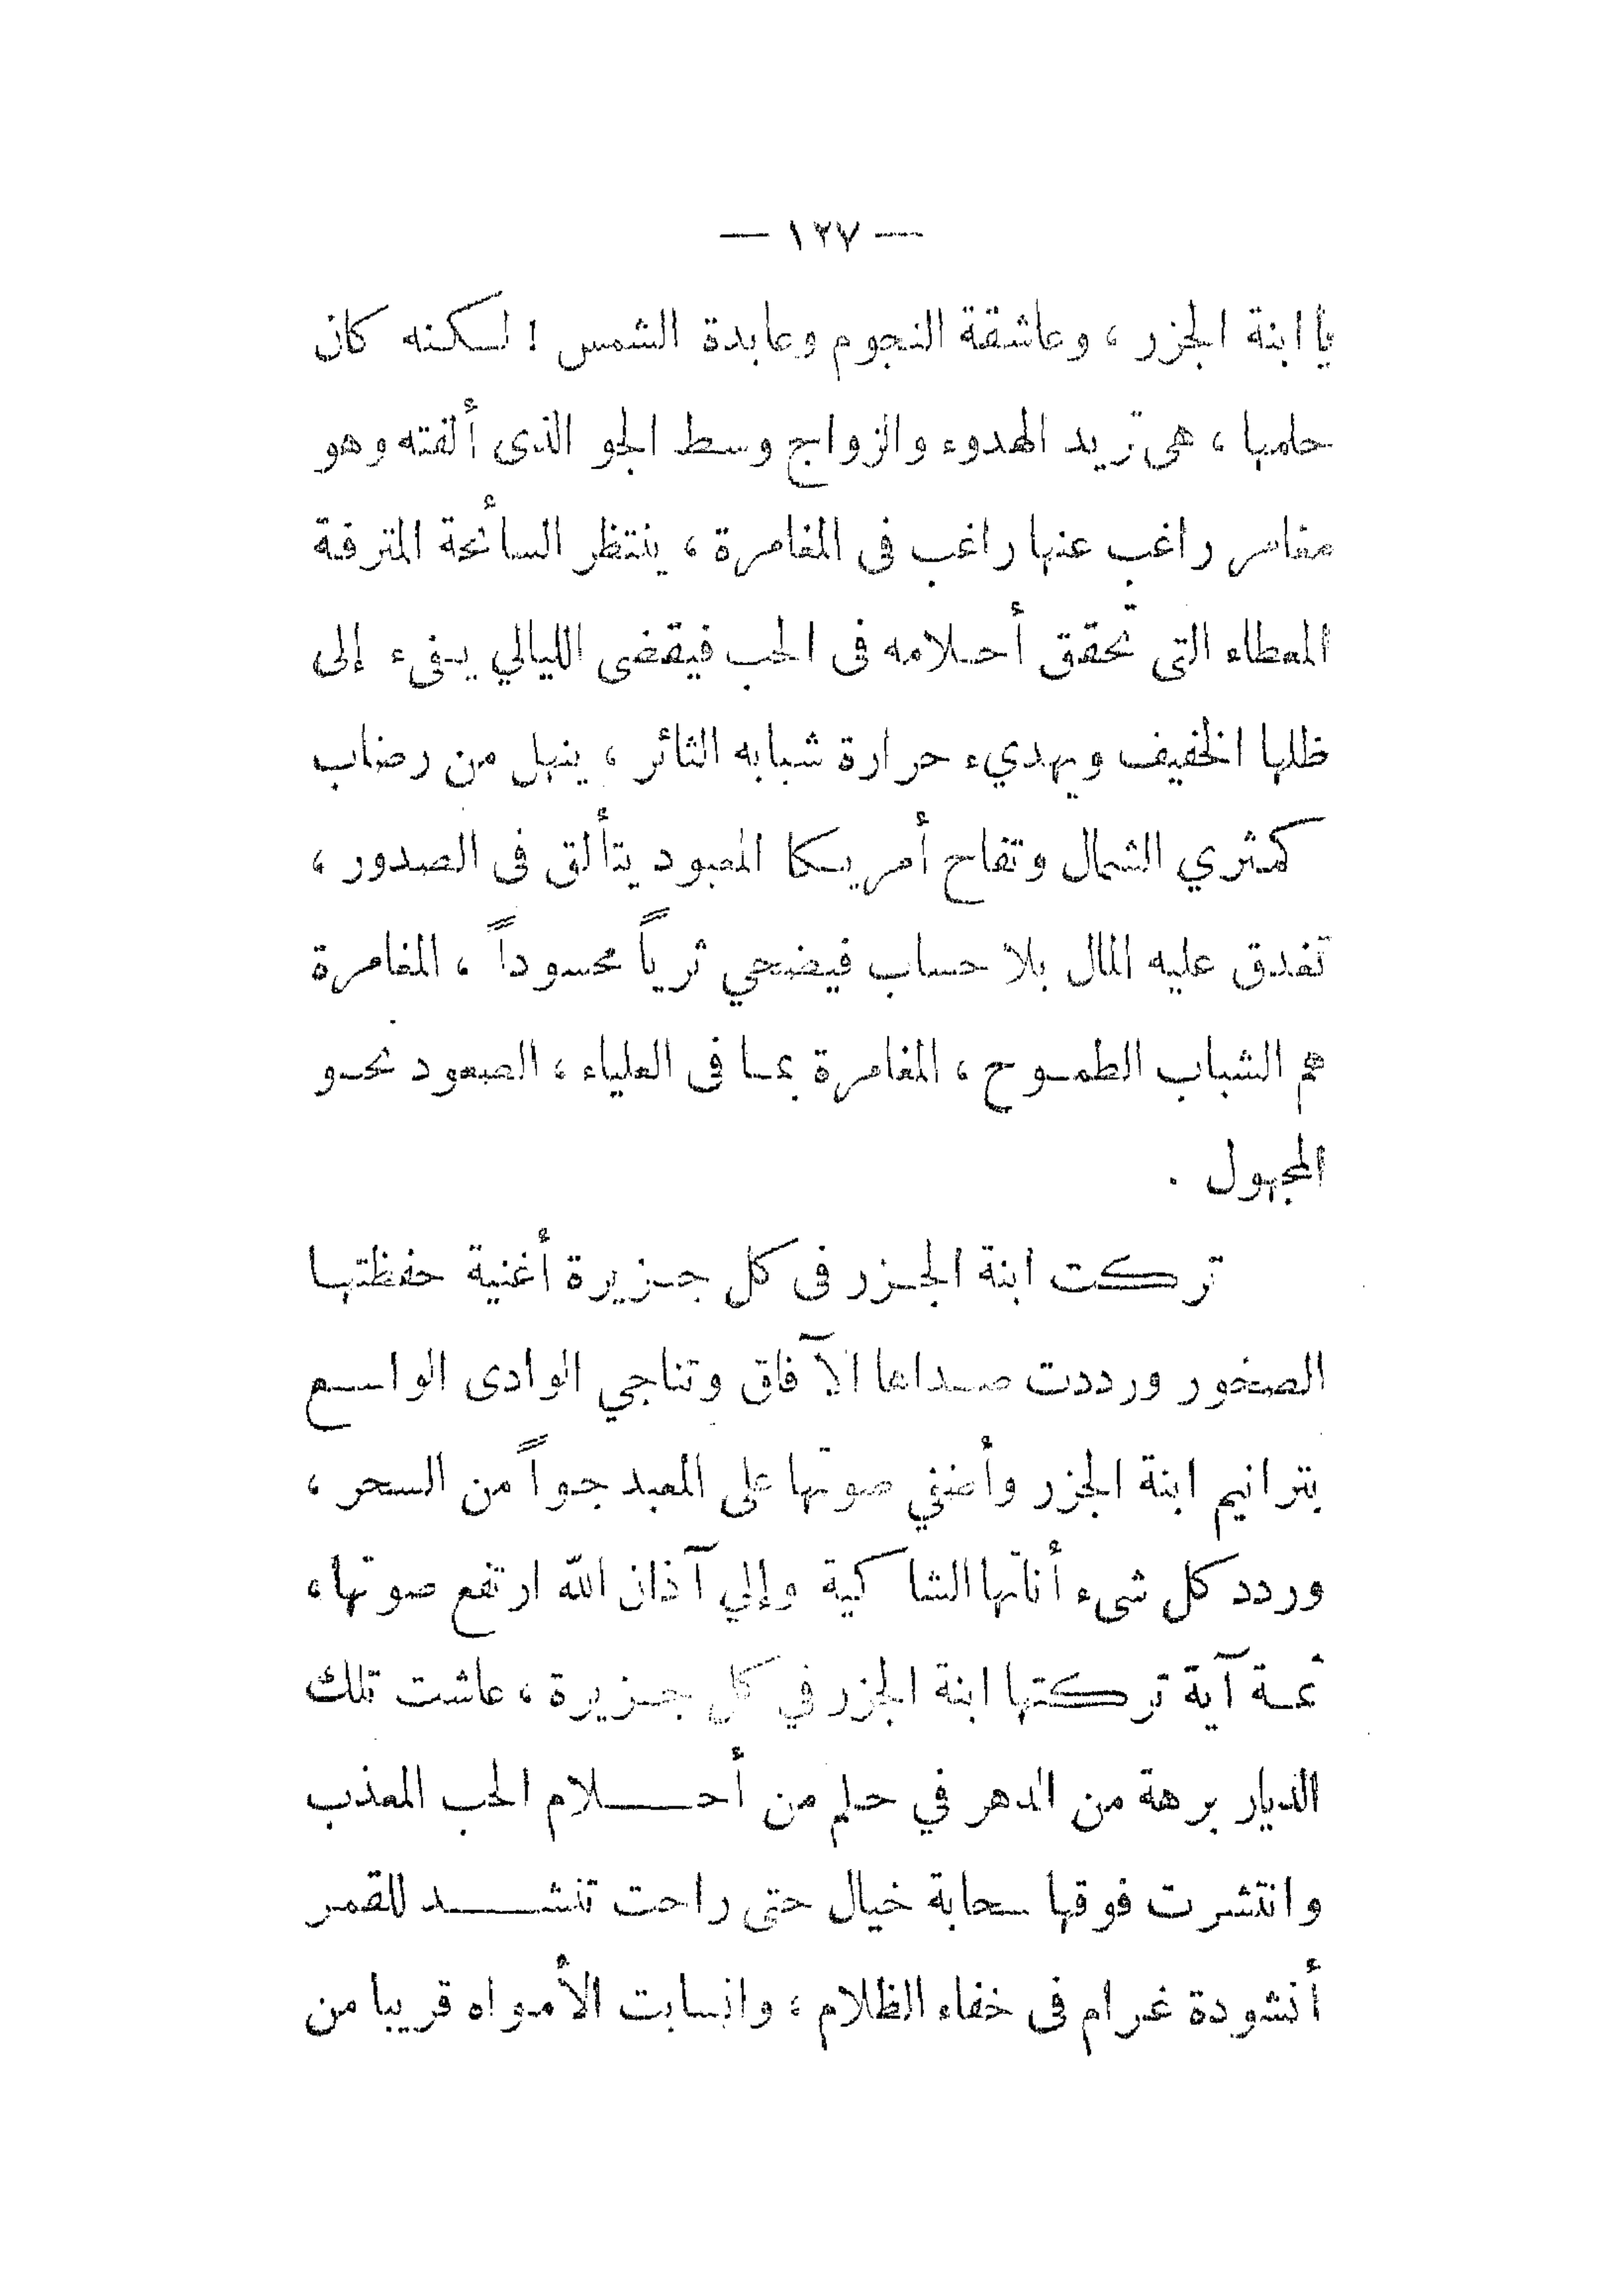 — ١٢٧ —
يا ابنة الجزر ، وعاشقة النجوم وعابدة الشمس ! لكنه كان
حلمها ، هى تريد الهدوء والزواج وسط الجو الذى ألفته وهو
مغامر راغب عنها راغب فى المغامرة ، ينتظر السائحة المترفة
المعطاء التى تحقق أحلامه فى الحب فيقضى الليالي يفىء إلى
ظلها الخفيف ويهديء حرارة شبابه الثائر ، ينهل من رضاب
كمثري الشمال وتفاح أمريكا المعبود يتألق فى الصدور ،
تغدق عليه المال بلا حساب فيضحي ثرياً محسوداً ، المغامرة
هم الشباب الطموح ، المغامرة بما فى العلياء ، الصعود نحو
المجهول .
تركت ابنة الجزر فى كل جزيرة أغنية حفظتها
الصخور ورددت صداها الآفاق وتناجي الوادى الواسع
بترانيم ابنة الجزر وأضفي صوتها على المعبد جواً من السحر ،
وردد كل شىء أناتها الشاكية وإلي آذان الله ارتفع صوتها ،
ثمة آية تركتها ابنة الجزر في كل جزيرة ، عاشت تلك
الديار برهة من الدهر في حلم من أحلام الحب المعذب
وانتشرت فوقها سحابة خيال حتى راحت تنشد للقمر
أنشودة غرام فى خفاء الظلام ، وانسابت الأمواه قريبا من